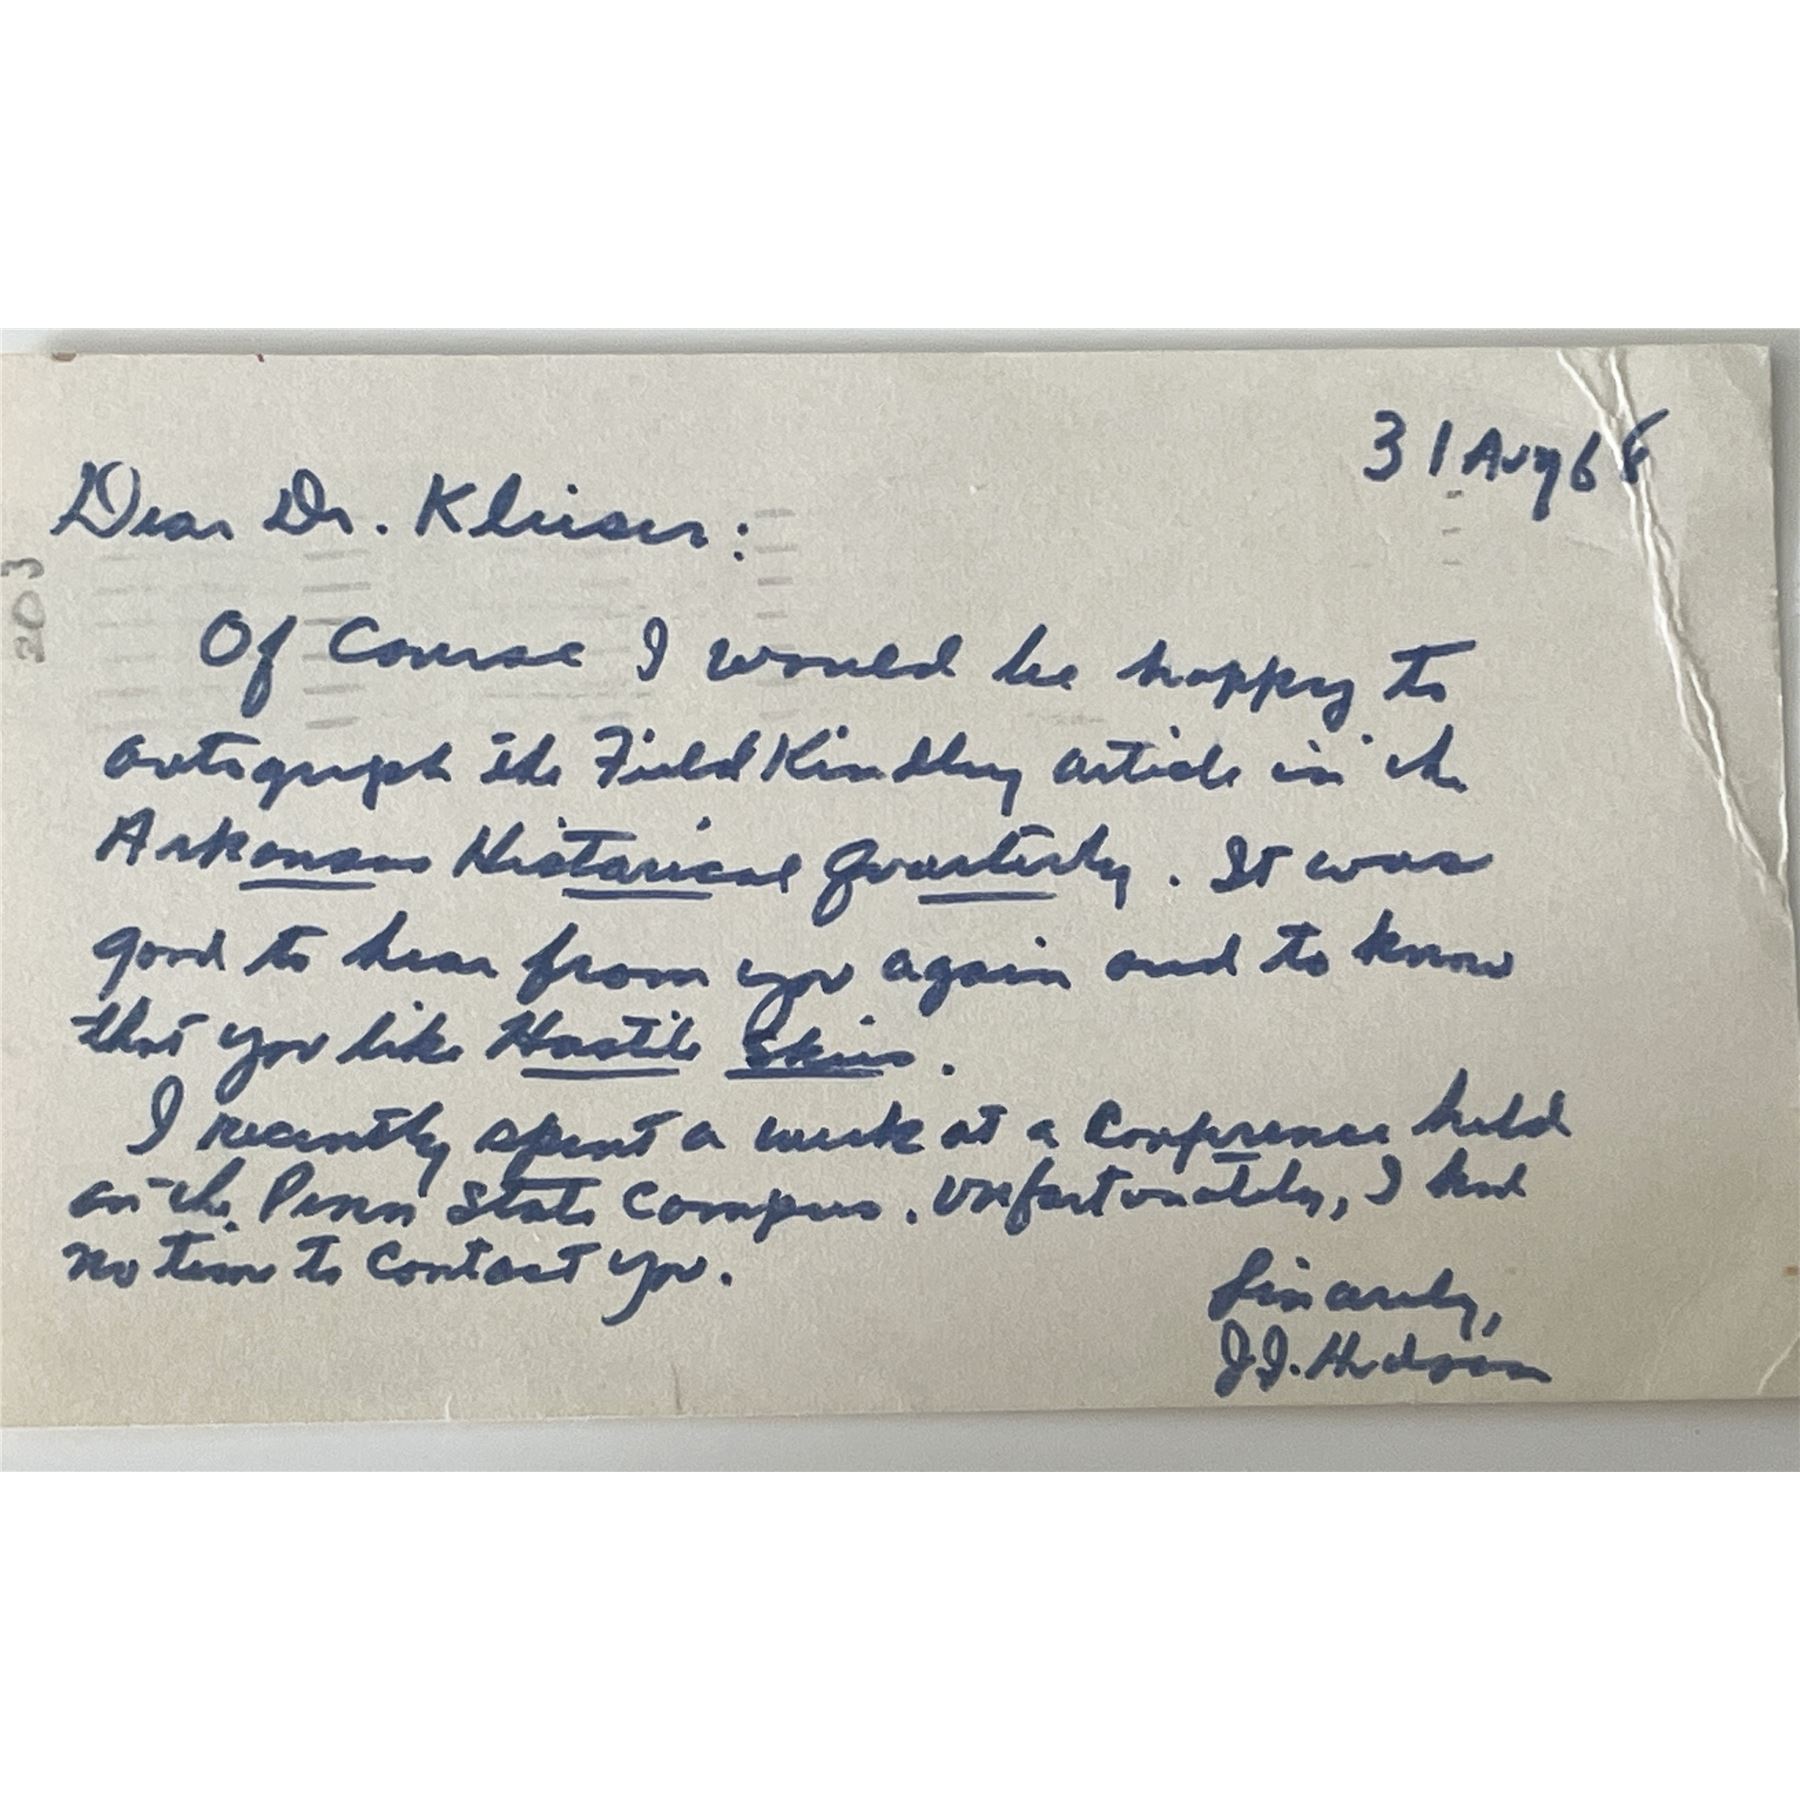 31 Aug 68
Dear Dr. Klieser:
203
Of Course I would be happy to
autograph the Field Kindley article in the
Arkansas Historical Quarterly. It was
good to hear from you again and to know
that you like Hostile Skies.
I recently spent a week at a Conference held
on the Penn State Campus. Unfortunately, I had
no time to Contact you.
Sincerely,
J.J. Hudson